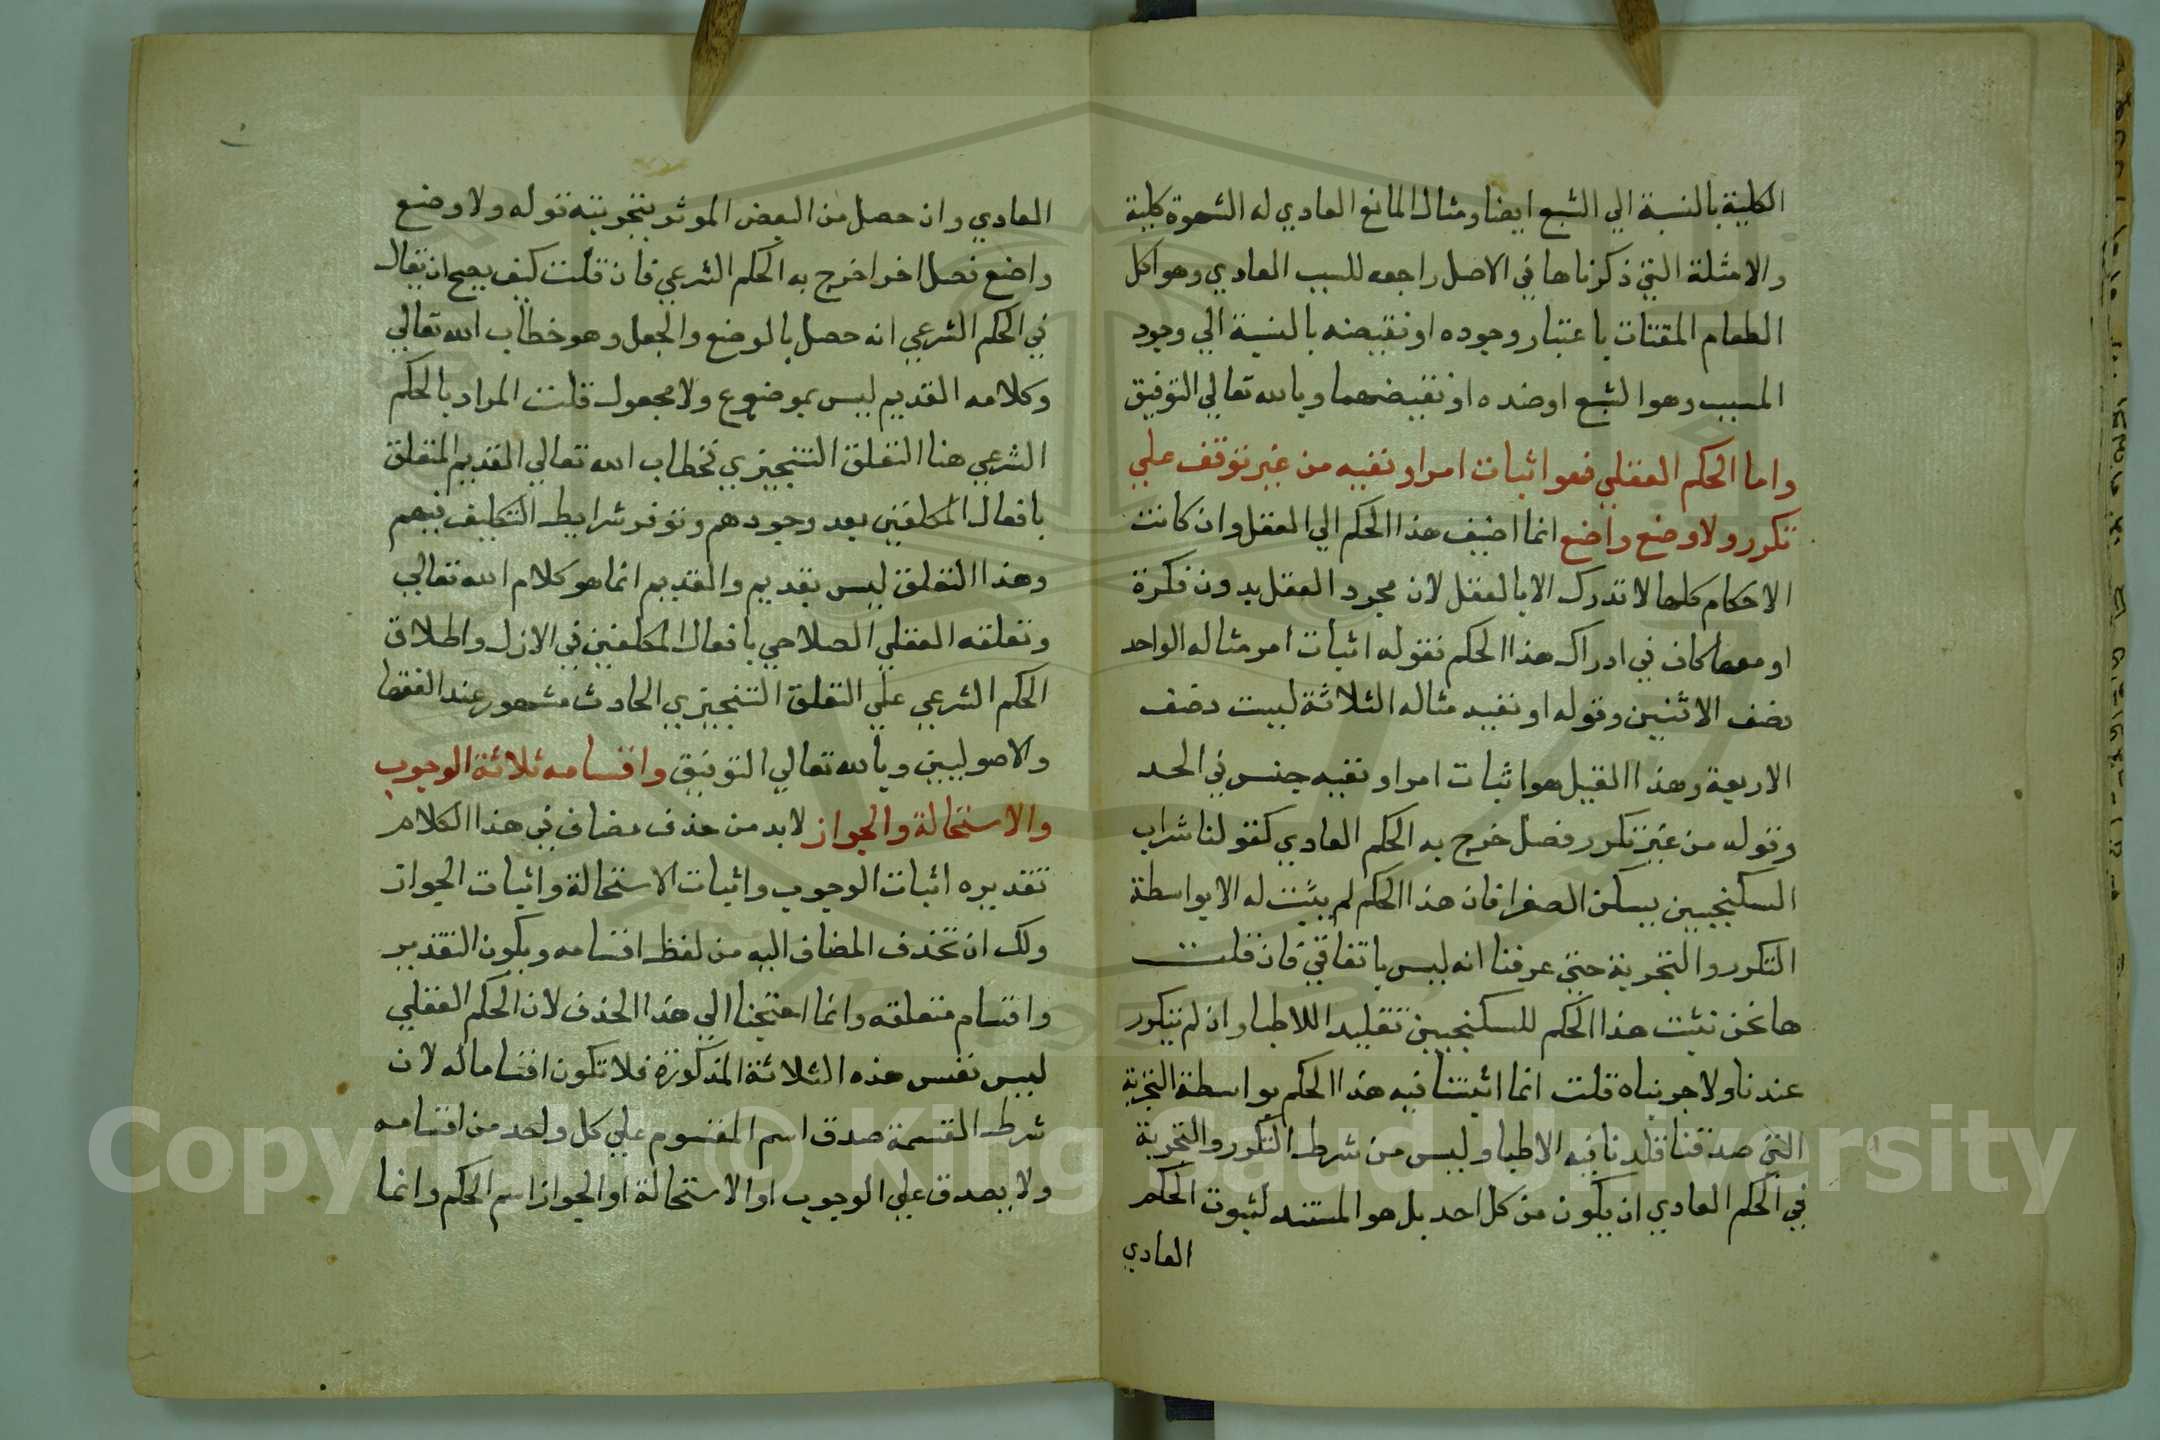 الكلية بالنسبة الي الشبع ايضا ومثال المانع العادي له الشهوة كلية
والامثلة التي ذكرناها في الاصل راجعه للسبب العادي وهو اكل
الطعام المقتات باعتبار وجوده او نقيضه بالنسبة الي وجود
المسبب وهو الشبع او ضده او نقيضهما وبالله تعالي التوفيق
واما الحكم العقلي فهو اثبات امر او نفيه من غير توقف علي
تكرر ولا وضع واضع انما اضيف هذا الحكم الي العقل وان كانت
الاحكام كلها لا تدرك الا بالعقل لان مجرد العقل بدون فكرة
او معها كاف في ادراك هذا الحكم فقوله اثبات امر مثاله الواحد
نصف الاثنين وقوله او نفيه مثاله الثلاثة ليست نصف
الاربعة وهذا القيل هو اثبات امر او نفيه جنس في الحد
وقوله من غير تكرر فصل خرج به الحكم العادي كقولنا شراب
السكنجبين يسكن الصفرا فان هذا الحكم لم يثبت له الا بواسطة
التكرر والتجربة حتي عرفنا انه ليس باتفاقي فان قلت
ها نحن نثبت هذا الحكم للسكنجبين تقليدا للاطبا وان لم يتكرر
عندنا ولا جربناه قلت انما اثبتنا فيه هذا الحكم بواسطة التجربة
التي صدقنا قلدنا فيه الاطبا وليس من شرط التكرر والتجربة
في الحكم العادي ان يكون من كل احد بل هو المستند لثبوت الحكم
العادي
العادي وان حصل من البعض الموثر بتجربته قوله ولا وضع
واضع فصل اخر اخرج به الحكم الشرعي فان قلت كيف يصح ان يقال
في الحكم الشرعي انه حصل بالوضع والجعل وهو خطاب الله تعالي
وكلامه القديم ليس بموضوع ولا مجعول قلت المراد بالحكم
الشرعي هنا التعلق التنجيزي لخطاب الله تعالي القديم المتعلق
بافعال المكلفين بعد وجودهم وتوفر شرايط التكليف فيهم
وهذا التعلق ليس بقديم والقديم انما هو كلام الله تعالي
وتعلقه العقلي الصلاحي بافعال المكلفين في الازل واطلاق
الحكم الشرعي علي التعلق التنجيزي الحادث مشهور عند الفقها
والاصوليين وبالله تعالي التوفيق واقسامه ثلاثة الوجوب
والاستحالة والجواز لابد من حذف مضاف في هذا الكلام
تقديره اثبات الوجوب واثبات الاستحالة واثبات الجواز
ولك ان تحذف المضاف اليه من لفظ اقسامه ويكون التقدير
واقسام متعلقه وانما احتجنا الي هذا الحذف لان الحكم العقلي
ليس نفس هذه الثلاثة المذكورة فلا تكون اقساما له لان
شرط القسمة صدق اسم المقسوم علي كل واحد من اقسامه
ولا يصدق علي الوجوب او الاستحالة او الجواز اسم الحكم وانما
Copyright © King Saud University